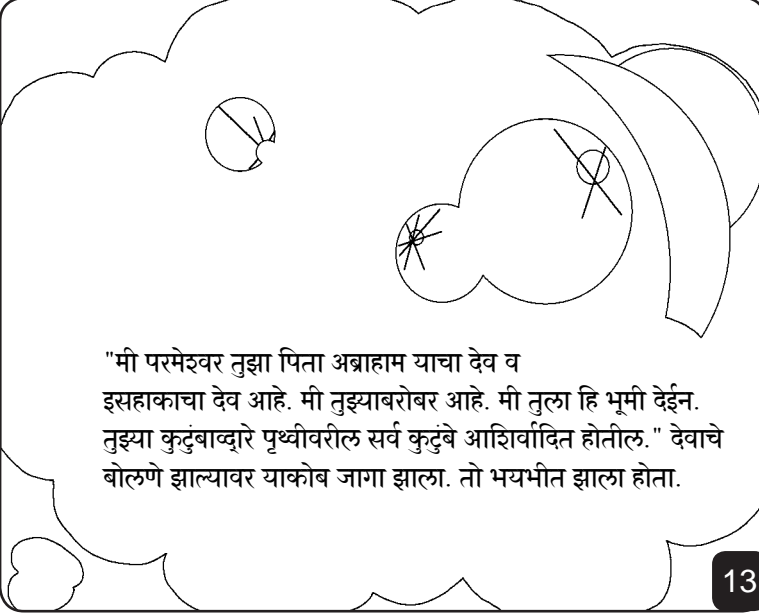 "मी परमेश्वर तुझा पिता अब्राहाम याचा देव व
इसहाकाचा देव आहे. मी तुझ्याबरोबर आहे. मी तुला हि भूमी देईन.
तुझ्या कुटुंबाव्दारे पृथ्वीवरील सर्व कुटुंबे आशिर्वादित होतील." देवाचे
बोलणे झाल्यावर याकोब जागा झाला. तो भयभीत झाला होता.
13